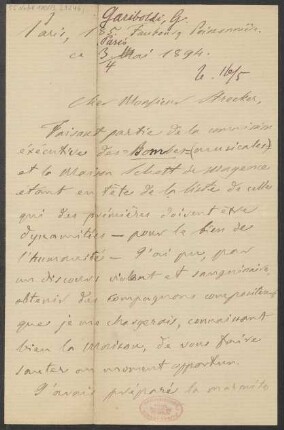 Gariboldi, G.
Paris, 15 Faubourg Poissonnière
Paris
ce 3/4 Mai 1894.
b. 16/5
Cher Monsieur Strecker,
Faisant partie de la commission
exécutive des Bombes (musicales)
et la Maison Schott de Mayence
étant en tête de la liste de celles
qui des premières doivent être
dynamitées — pour le bien de
l'humanité — J'ai pu, par
un discours violent et sanguinaire,
obtenir des compagnons compositeurs
que je me chargerais, connaissant
bien la Maison, de vous faire
sauter au moment opportun.
J'avais préparé la marmite